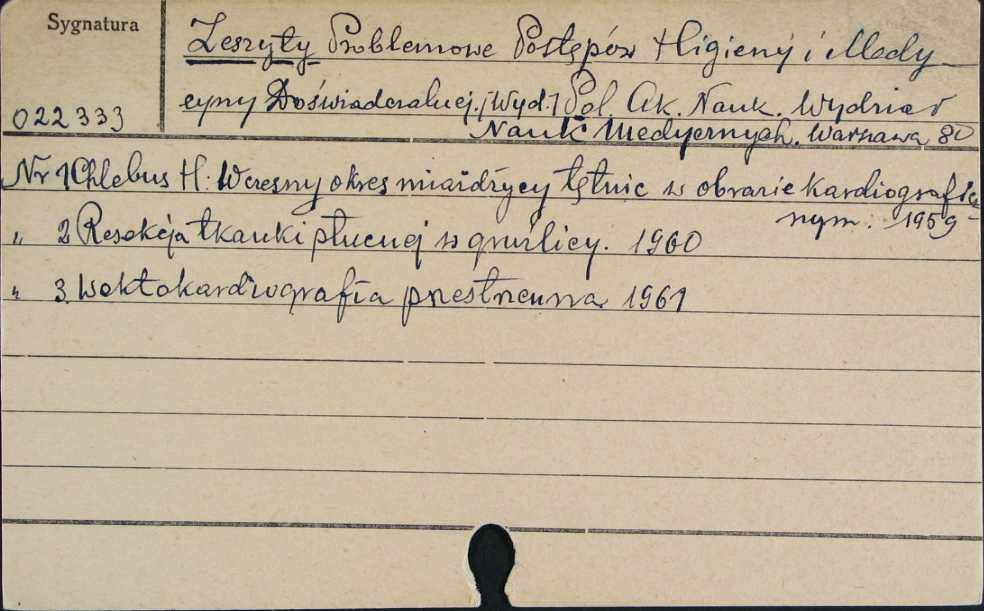 Sygnatura
Zeszyty Problemowe Postępów Higieny i Medy-
cyny Doświadczalnej. /Wyd./ Pol. Ak. Nauk. Wydział
022333
Nauk Medycznych. Warszawa 80
Nr 1 Chlebus H: Wczesny okres miażdżycy tętnic w obrazie kardiografi
cznym. 1959
" 2 Resekcja tkanki płucnej w gruźlicy. 1960
" 3. Wektokardiografia przestrzenna 1961